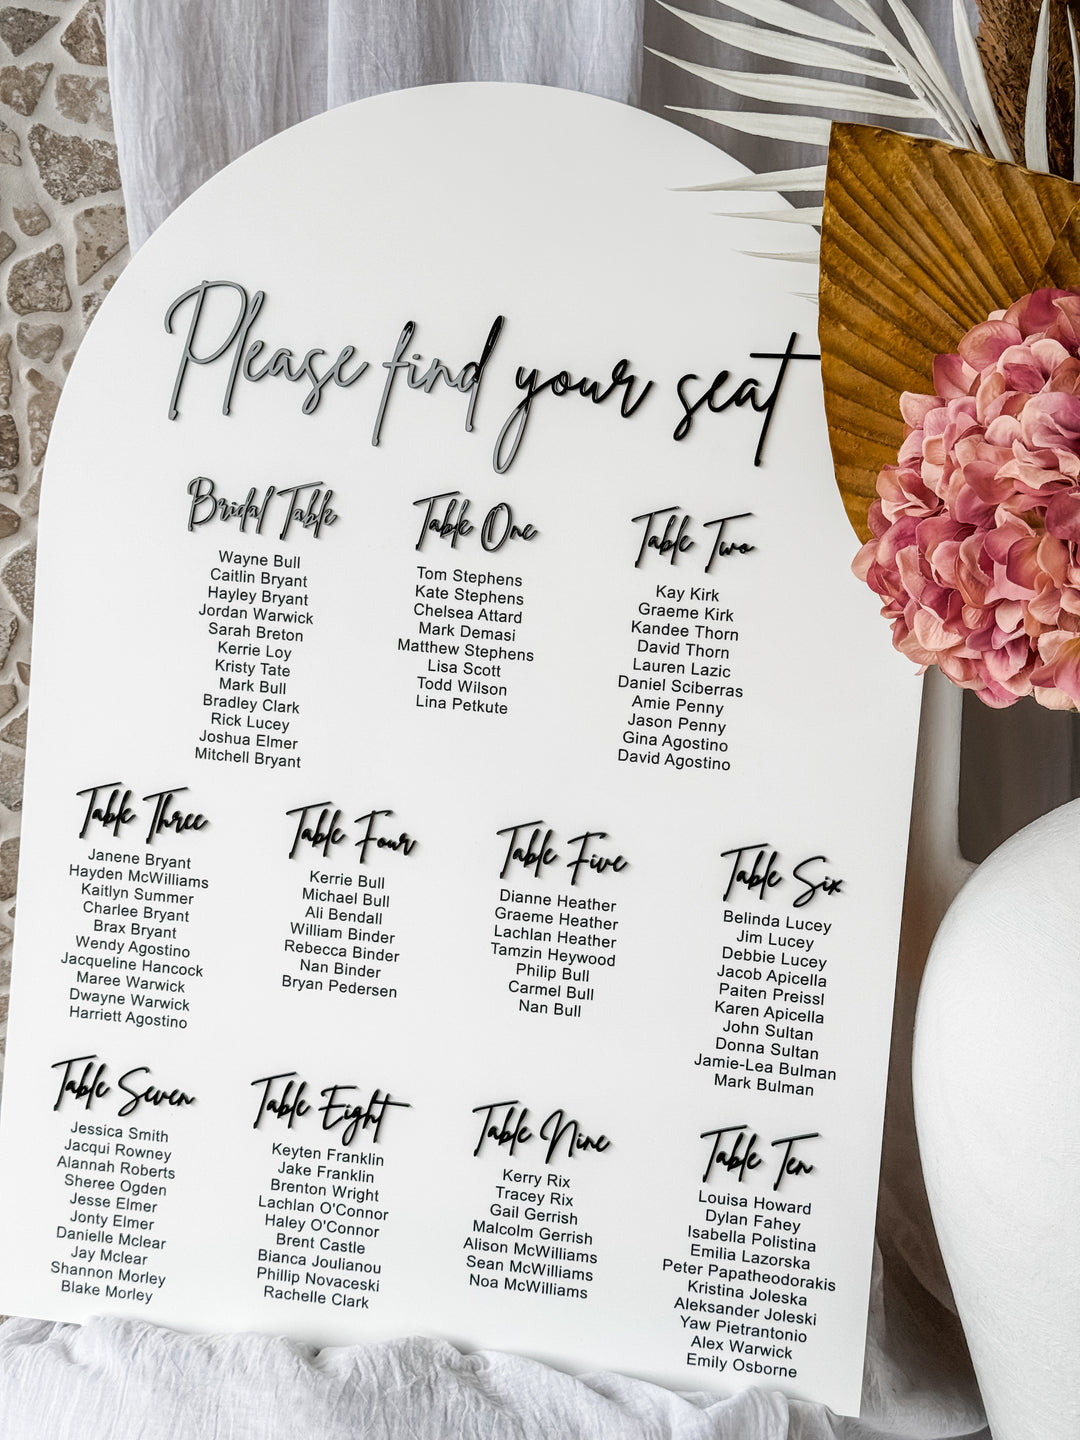 Please find your seat
Bridal Table
Wayne Bull
Caitlin Bryant
Hayley Bryant
Jordan Warwick
Sarah Breton
Kerrie Loy
Kristy Tate
Mark Bull
Bradley Clark
Rick Lucey
Joshua Elmer
Mitchell Bryant
Table One
Tom Stephens
Kate Stephens
Chelsea Attard
Mark Demasi
Matthew Stephens
Lisa Scott
Todd Wilson
Lina Petkute
Table Two
Kay Kirk
Graeme Kirk
Kandee Thorn
David Thorn
Lauren Lazic
Daniel Sciberras
Amie Penny
Jason Penny
Gina Agostino
David Agostino
Table Three
Janene Bryant
Hayden McWilliams
Kaitlyn Summer
Charlee Bryant
Brax Bryant
Wendy Agostino
Jacqueline Hancock
Maree Warwick
Dwayne Warwick
Harriett Agostino
Table Four
Kerrie Bull
Michael Bull
Ali Bendall
William Binder
Rebecca Binder
Nan Binder
Bryan Pedersen
Table Five
Dianne Heather
Graeme Heather
Lachlan Heather
Tamzin Heywood
Philip Bull
Carmel Bull
Nan Bull
Table Six
Belinda Lucey
Jim Lucey
Debbie Lucey
Jacob Apicella
Paiten Preissl
Karen Apicella
John Sultan
Donna Sultan
Jamie-Lea Bulman
Mark Bulman
Table Seven
Jessica Smith
Jacqui Rowney
Alannah Roberts
Sheree Ogden
Jesse Elmer
Jonty Elmer
Danielle Mclear
Jay Mclear
Shannon Morley
Blake Morley
Table Eight
Keyten Franklin
Jake Franklin
Brenton Wright
Lachlan O'Connor
Haley O'Connor
Brent Castle
Bianca Joulianou
Phillip Novaceski
Rachelle Clark
Table Nine
Kerry Rix
Tracey Rix
Gail Gerrish
Malcolm Gerrish
Alison McWilliams
Sean McWilliams
Noa McWilliams
Table Ten
Louisa Howard
Dylan Fahey
Isabella Polistina
Emilia Lazorska
Peter Papatheodorakis
Kristina Joleska
Aleksander Joleski
Yaw Pietrantonio
Alex Warwick
Emily Osborne